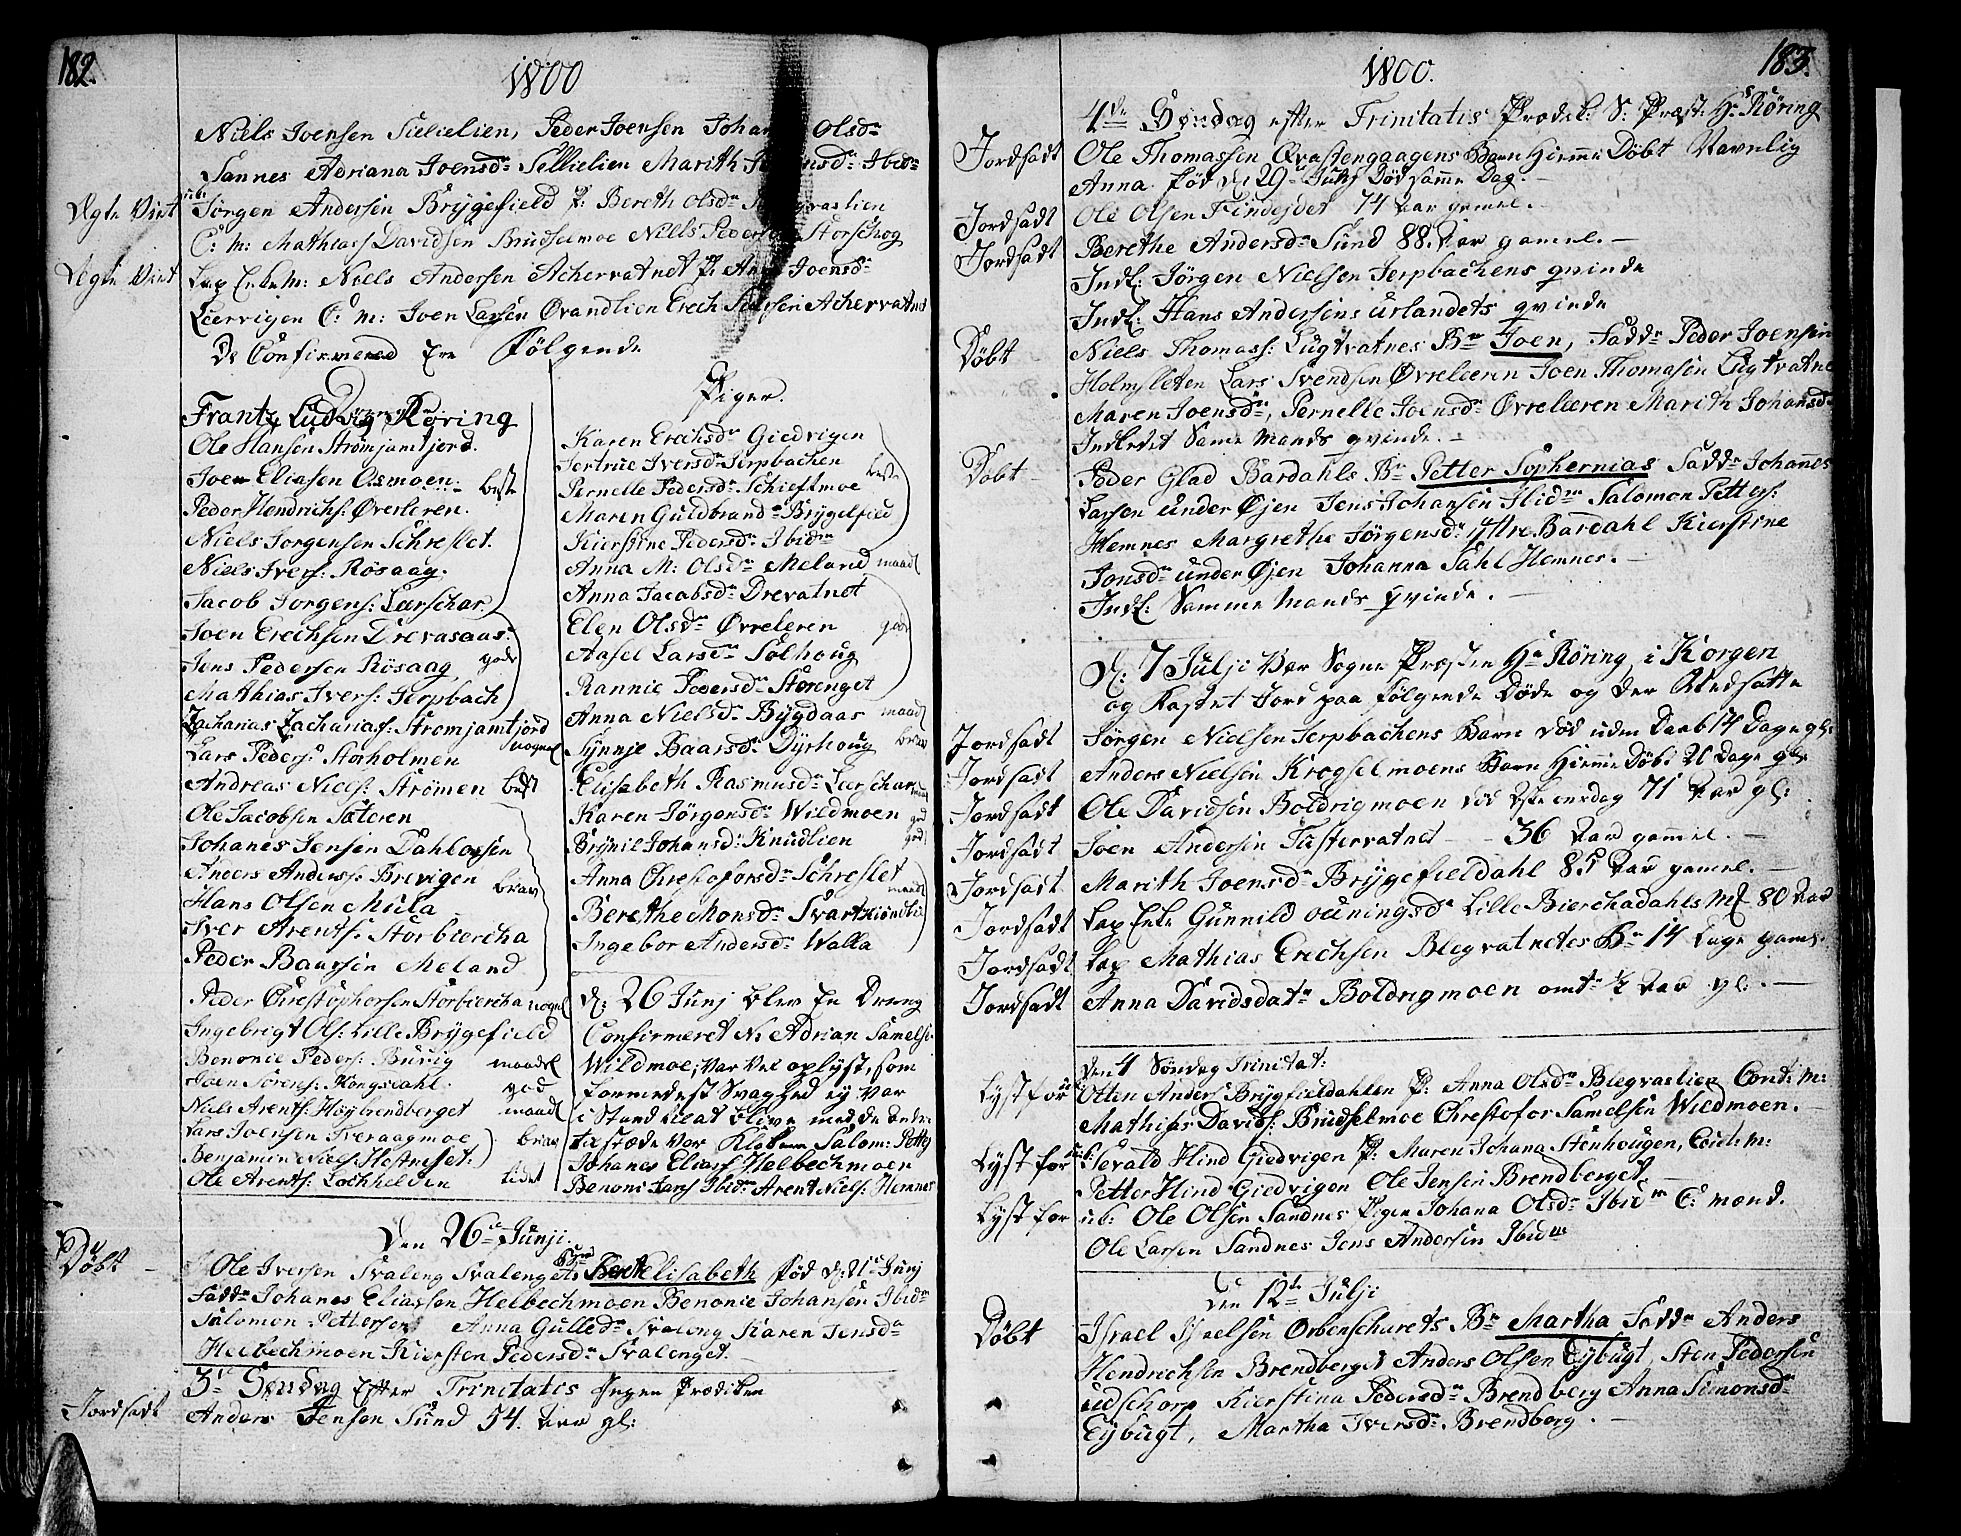 182.
1800
Niels Joensen Sielielien, Peder Joensen Johan Olsd:
Sannes Adriana Joensd: Sellielien Marith Ibid:
Ægte Viet Jørgen Andersen Brygefield P: Bereth Olsd:
C: M: Mathias Davidsen Brudselmoe Niels Peders Storschog
Ægte Viet Lap Enke M: Niels Andersen Achervatnet P: Anne Joensd:
Leervigen C: M: Joen Larsen Øvandlien Erech Achervatnet
De Confirmered Ere Følgende
Drenge
Frantz Ludvig Røring
Ole Hansen Strømjamtjord.
Joen Eliasen Osmoen. beste
Peder Hendrichs: Øverleren.
Niels Jørgensen Schreslet.
Niels Ivers: Røsaag.
Jacob Jørgens: Leerschar
Joen Erechsen Drevasaas:
Jens Pedersen Røsaag gode
Mathias Ivers: Jerpbach
Zacharias Zacharias: Strømjamtjord
Lars Peders: Storholmen
Andreas Niels: Strømen best
Ole Jacobsen Sæteren
Johanes Jensen Dahlosen
Anders Anders: Brevigen brav
Hans Olsen Mula
Iver Arents: Storbiercha
Peder Baarsen Meland
Peder Christophorsen Storbiercha
Ingebrigt Ols: Lille Brygefield
Benonie Peders: Burig maadel
Joen Sørens: Kongsdahl. god
Niels Arents: Høybrendberget maadl
Lars Joensen Tveraagmoe brav
Benjamin Niels: Hestneset:
Ole Arents: Lochhelden
Piger.
Karen Erechsd: Giedvigen
Jertrue Iversd: Jerpbachen beste
Pernelle Pedersd: Schieftmoe
Maren Guldbrands: Brygelfield
Kierstine Pedersd: Ibid:
Anna M: Olsd: Meland maadl
Anna Jacobsd: Drevatnet
Elen Olsd: Øvreleren god
Aasel Larsd: Solhoug
Rannie Pedersd: Storenget
Anna Nielsd: Bygdaas maadl
Synnje Baarsd: Dyrhoug brav
Elisabeth Rasmusd: Leerschar
Karen Jørgensd: Wildmoen god
Brynil Johansd: Knudlien god
Anna Chrestofersd: Schreslet
Berethe Monsd: Svarthiøndlie
Ingebor Andersd: Walla
d: 26 Junj blev En Dreng
Confirmeret N: Adrian Samels:
Wildmoe, var vel oplyst, som
formedelst Svaghed ey var
i Stand til at blive med de andre
tilstæde var Kl: Salom: Petter
Johanes Elias: Helbechmoen
Benoni Jans: Ibid: Arent Niels: Hemnes
Den 26de Junji.
Døbt Ole Iversen Svaleng Svalengets Barn Berit Elisabeth fød d: 21de Junj
Fadd: Johanes Eliassen Helbechmoen Benonie Johansen Ibid:
Salomon Pettersen Anna Gulled: Svaleng Karen Jensd:
Helbechmoen Kiersten Pedersd: Svalenget.
3de Søndag Efter Trinitatis Ingen Prædiken
Jordsadt Anders Jensen Sund 54. Aar gl:
183.
1800.
4de Søndag efter Trinitatis Prædik: S: Præst: Hr Røring
Jordsadt Ole Thomassen Qvastengaagens Barn Hiemme Døbt Navnlig
Anna fød d: 29 Død samme Dag.
Jordsadt Ole Olsen Findejdet 74 Aar gamel.
Jordsadt Berethe Andersd: Sund 88. Aar gamel.
Indl: Jørgen Nielsen Jerpbachens qvinde
Indl: Hans Andersens Urlandets qvinde
Døbt Niels Thomass: Lugtvatnes B: Joen, Fadd: Peder Joensen
Holmsleten Lars Svendsen Øvreleren Joen Thomasen Lugtvatne
Maren Joensd:, Pernelle Joensd: Øvreleeren Marith Johansd:
Indledet Samme Mands qvinde.
Døbt Peder Glad Bardahls B: Petter Sophernias Fadd: Johannes
Larsen under Øjen Jens Johansen Ibid: Salomon Petters:
Hemnes Margrethe Jørgensd: Ytre Bardahl Kierstine
Jonsd: under Øjen Johanna Dahl Hemnes.
Indl: Samme Mands Qvinde.
d: 7 Julji Var Sogne Præsten Hr Røring i Korgen
og Kastet Jord paa følgende Døde og der Nedsatte
Jordsadt Jørgen Nielsen Jerpbachens Barn død uden Daab 14 Dage gl:
Jordsadt Anders Nielsen Krogselmoens Barn Hiemme Døbt 20 Dage gl:
Jordsadt Ole Davidsen Boldrigmoen 71 Aar gl:
Jordsadt Joen Andersen Tustervatnet 36 Aar gamel.
Jordsadt Marith Joensd: Brygefieldahl 85 Aar gamel.
Jordsadt Lap Enke Gunnild Ouningsd: Lille Bierchadahls M: 80 Aar
Jordsadt Lap Mathias Erechsen Blegvatnetes B: 14 Dage gaml:
Jordsadt Anna Davidsdat: Boldrigmoen omt: ½ Aar gl:
Den 4 Søndag Trinitat:
Lyst for Otten Anders: Brygfieldahlen P: Anna Olsd: Blegvaslien Cont: M:
Mathias Davids: Brudselmoe Chrestofor Samelsen Wildmoen.
Lyst for Sevald Hind Giedvigen P: Maren Johana Stenhougen, Cont: M:
Petter Hind Giedvigen Ole Jensen Brendberget.
Lyst for ub: Ole Olsen Sandnes Pigen Johana Olsd: Ibid: C: mænd.
Ole Larsen Sandnes Jens Andersen Ibid:
den 12te Julji
Døbt Israel Israelsen Orbenschurets B: Martha Fadd: Anders
Hendrichsen Brendberget Anders Olsen Eybugt, Sten Pedersen
Udschorp Kierstina Pedersd: Brendberg Anna Simonsd:
Eybugt, Martha Iversd: Brendborg.